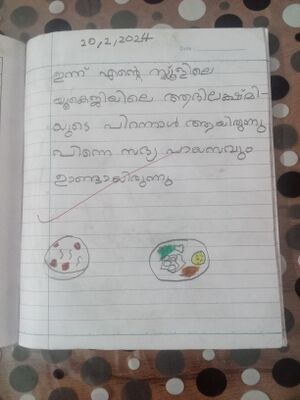 20,2,2024
Date:
ഇന്ന് എന്റെ സ്കൂളിലെ
യുകെജിയിലെ ആദിലക്ഷ്മി-
യുടെ പിറന്നാൾ ആയിരുന്നു
പിന്നെ സദ്യ പായസവും
ഉണ്ടായിരുന്നു